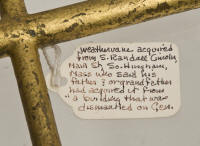 Weathervane acquired
from S. Randall
Main St. So. Hingham,
Mass who said his
father & grandfather
had acquired it from
a building that was
dismantled on